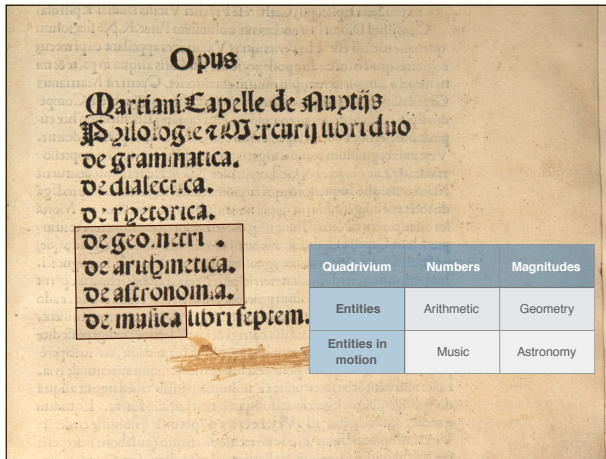 Opus
Martiani Capelle de Nuptijs
Philologie ⁊ Mercurij libri duo
de grammatica.
de dialectica.
de rhetorica.
de geometri .
de arithmetica.
de astronomia.
de musica libri septem.
Quadrivium Numbers Magnitudes
Entities Arithmetic Geometry
Entities in motion Music Astronomy